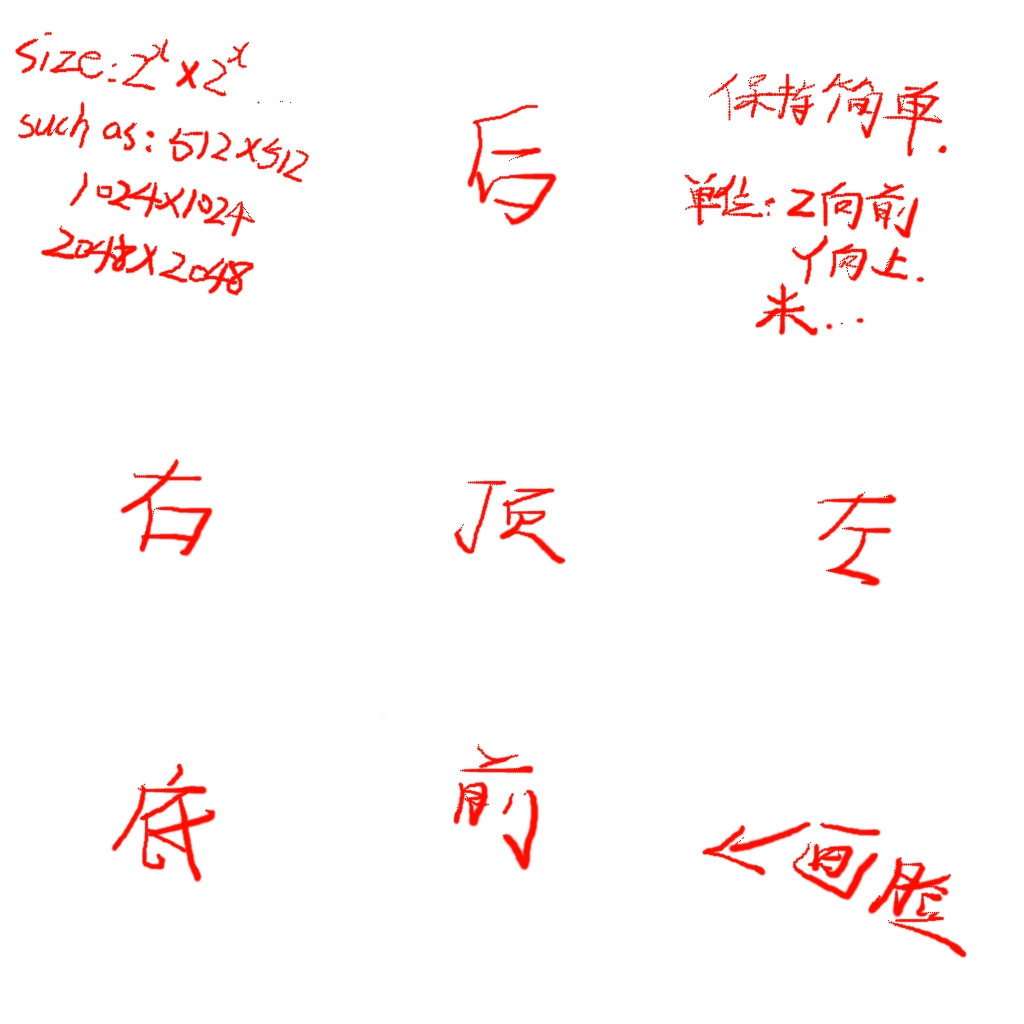 size: 2ˣ × 2ˣ ...
such as: 512×512
1024×1024
2048×2048
后
保持简单.
单位: Z向前
Y向上.
米...
右 顶 左
底 前
←画脸